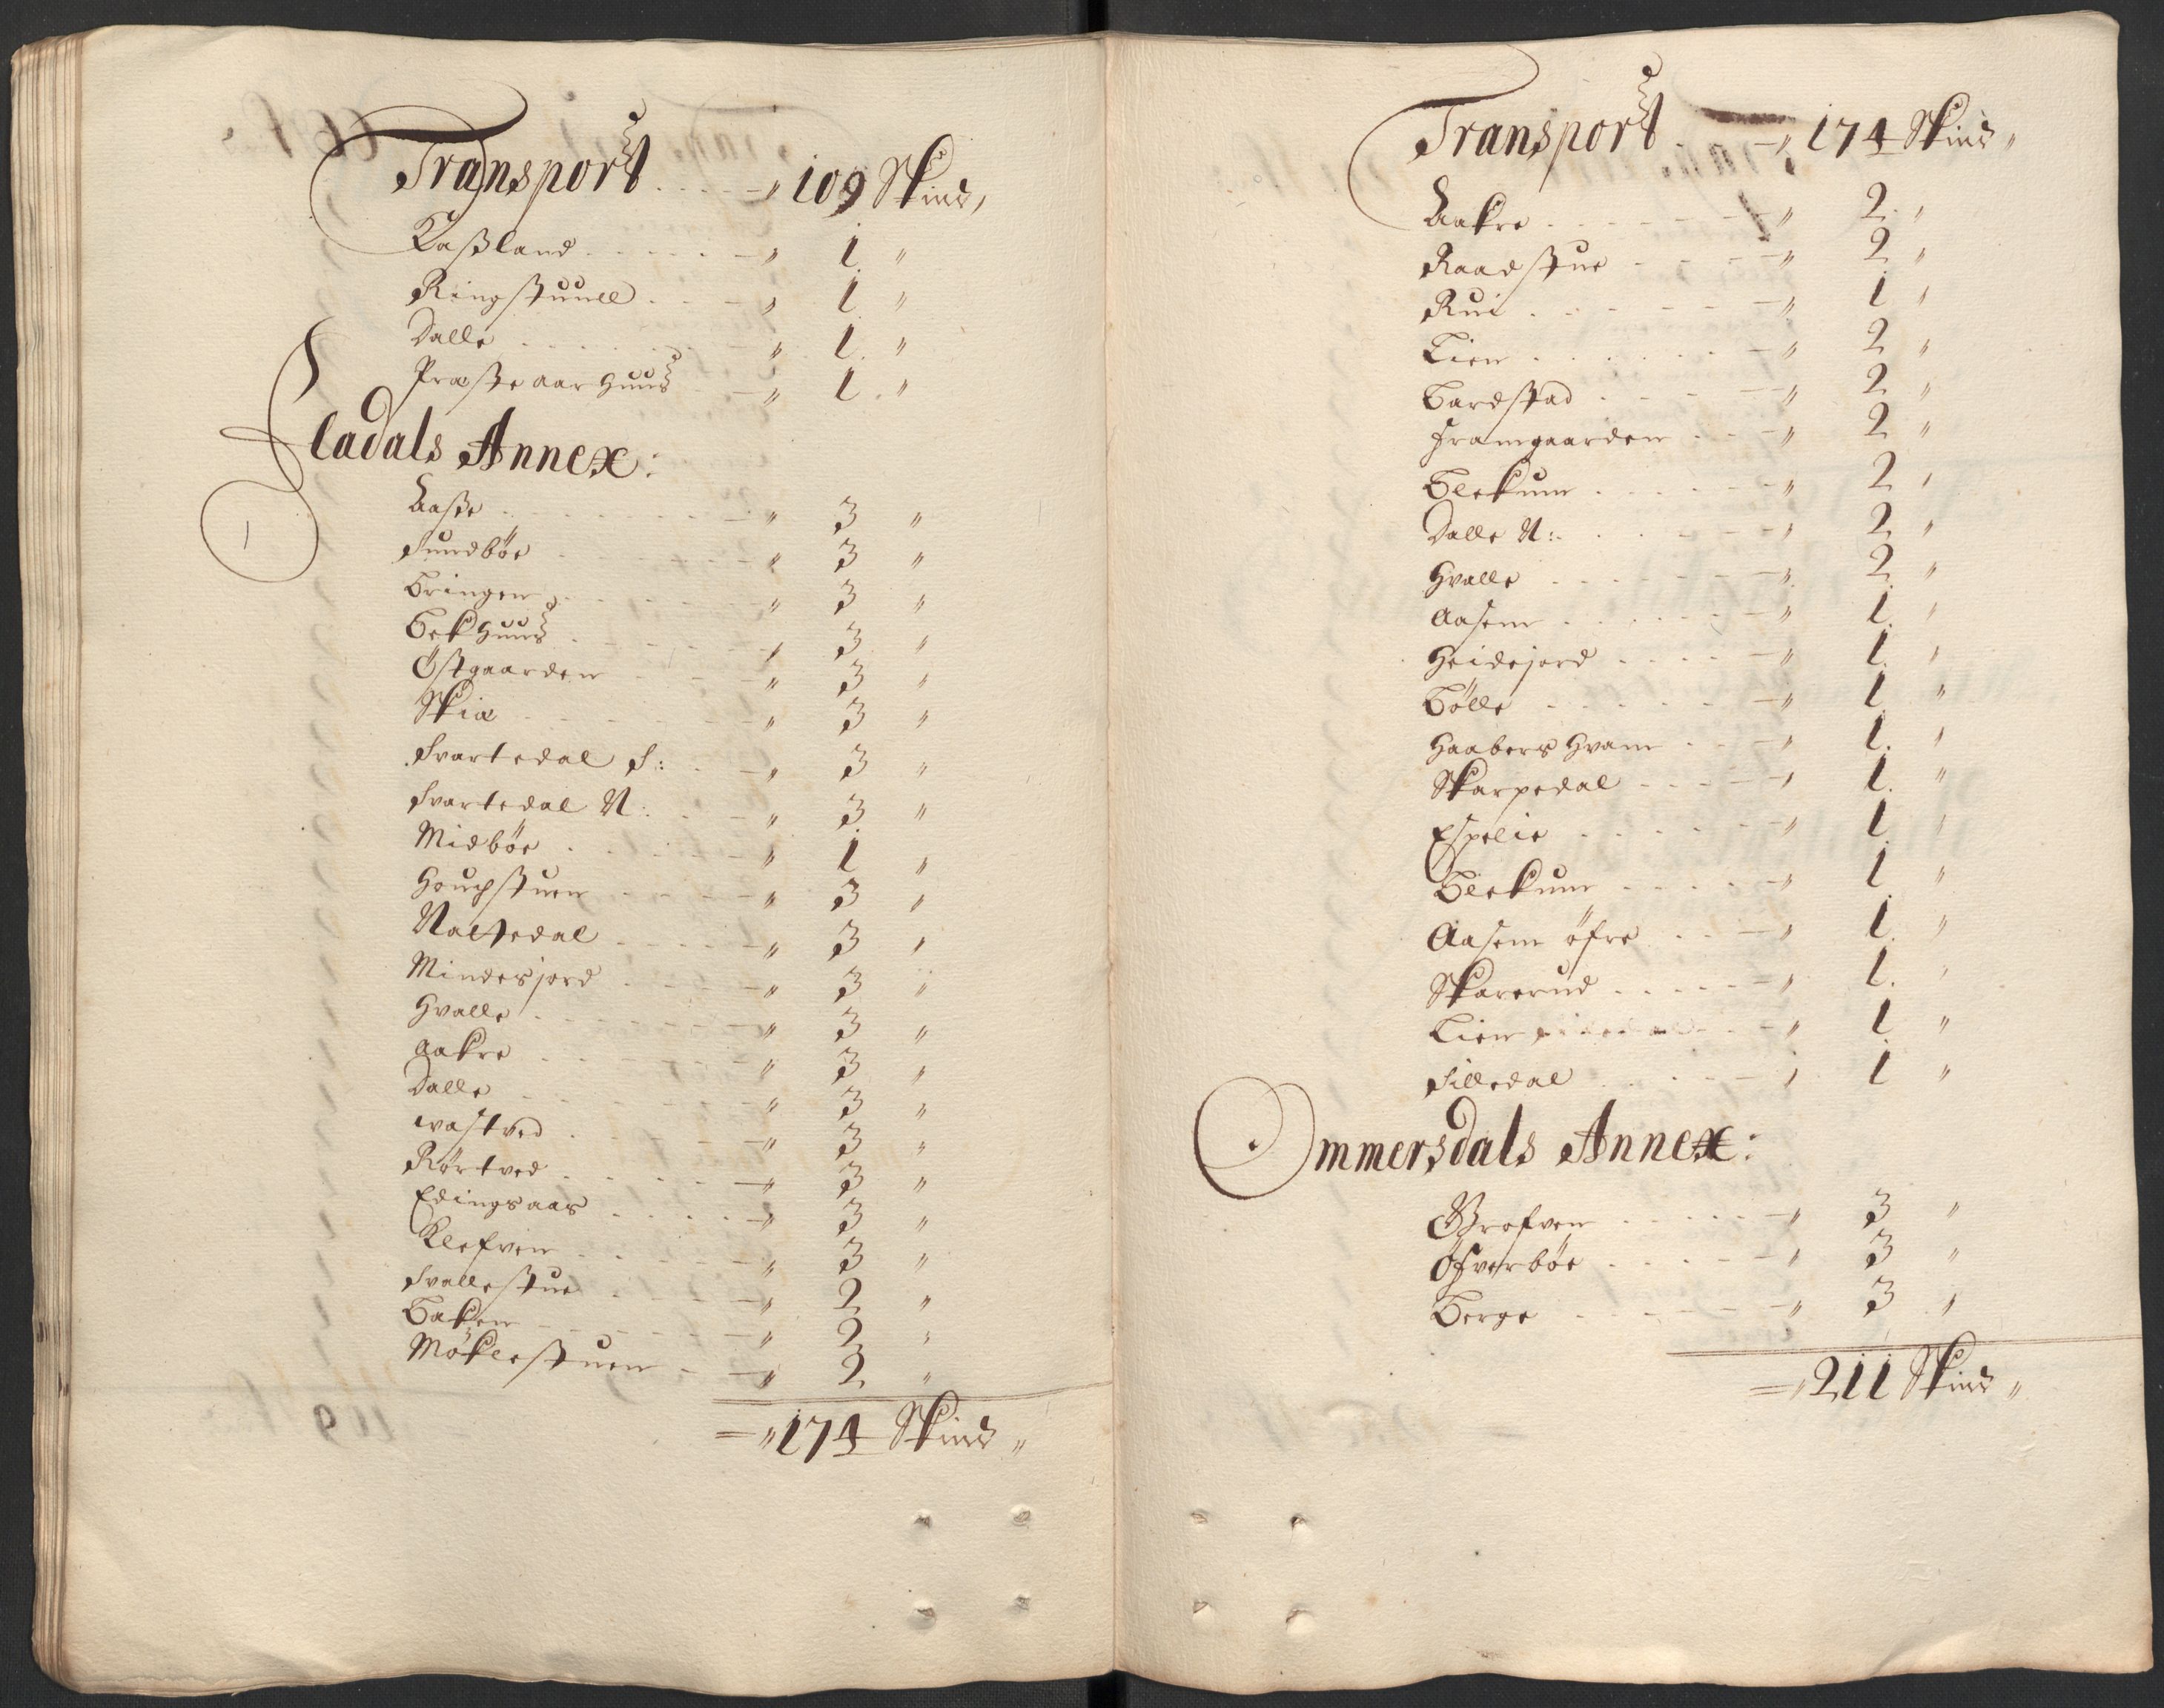 Transport . . . . — „ 109 Skind„
Kaßland . . . . . — „ 1. „
Ringstuuel . . . — „ 1. „
Dalle . . . . . . „ 1. „
Præste aarhuus — „ 1. „
Fladals Annex:
Aase . . . . . . . — „ 3 „
Sundböe . . . . — „ 3 „
Bringen . . . . . — „ 3 „
Bekhuus . . . . . — „ 3 „
Östgaarden . . . — „ 3 „
Skiæ . . . . . . — „ 3 „
Svartedal S: . — „ 3 „
Svartedal N: . . — „ 3 „
Midböe . . . . . — „ 1 „
Houghstuen . . . — „ 3 „
Naltedal . . . . — „ 3 „
Mindesjord . . . — „ 3 „
Hvalle . . . . . — „ 3 „
Aakre . . . . . — „ 3 „
Dalle . . . . . — „ 3 „
wastved . . . . — „ 3 „
Rörtved . . . . — „ 3 „
Edingsaas . . . . — „ 3 „
Klefven . . . . — „ 3 „
Svallestue . . . — „ 2 „
Baken . . . . . — „ 2 „
Möklestuen . — „ 2 „
= „ 174 Skind „
Transport . . — „ 174 Skind „
Aakre . . . . . . — „ 2. „
Raadstue . . . . — „ 2 „
Rui . . . . . . — „ 1 „
Lien . . . . . . — „ 2 „
Bardstad . . . . — „ 2 „
Framgaarden . . — „ 2 „
Blekum . . . . . — „ 2 „
Dalle N: . . . . — „ 2 „
Hvalle . . . . . — „ 2. „
Aasem . . . . . — „ 1. „
Heidejord . . . . — „ 1. „
Bölle . . . . . — „ 1. „
Haabers Hvam . . — „ 1. „
Skarpedal . . . . — „ 1. „
Espelie . . . . . — „ 1. „
Blekum . . . . . — „ 1 „
Aasem öfre . . — „ 1. „
Skarerud . . . . — „ 1. „
Lien . . — „ 1 „
Silledal . . . . — „ 1 „
Ommersdals Annex:
Grofven . . . . . — „ 3 „
Öfverböe . . . . — „ 3 „
Berge . . . . . — „ 3 „
= „ 211 Skind „